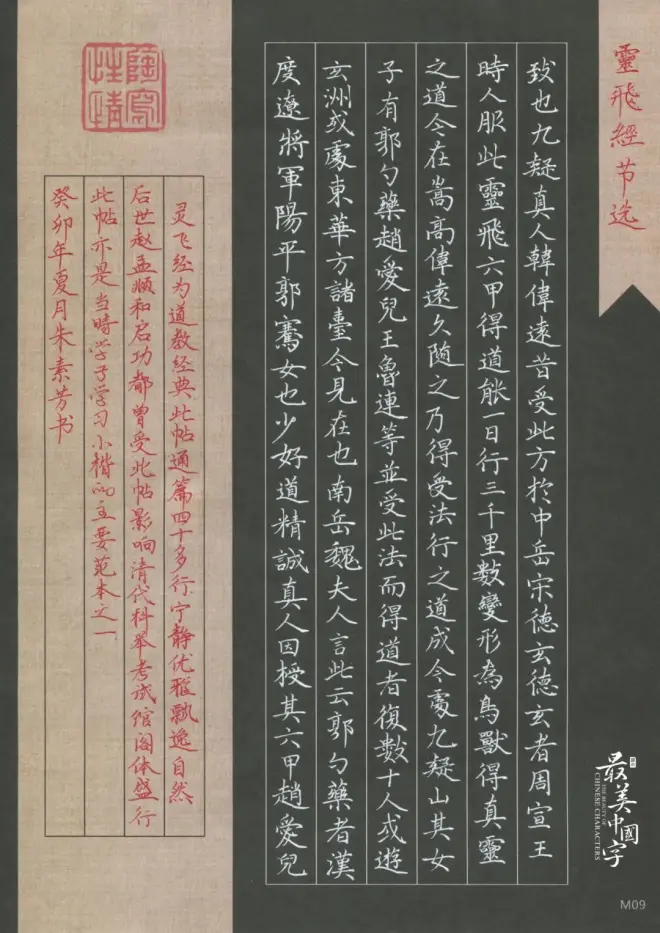 靈飛經节选
致也九疑真人韓偉遠昔受此方於中岳宗德玄德玄者周宣王
時人服此靈飛六甲得道能一日行三千里數變形為鳥獸得真靈
之道今在嵩高偉遠久隨之乃得受法行之道成今處九疑山其女
子有郭勺藥趙愛兒王魯連等並受此法而得道者復數十人或遊
玄洲或處東華方諸臺今見在也南岳魏夫人言此云郭勺藥者漢
度遼將軍陽平郭騫女也少好道精誠真人因授其六甲趙愛兒
陶寫性情
灵飞经为道教经典此帖通篇四十多行宁静优雅飘逸自然
后世赵孟頫和启功都曾受此帖影响清代科举考试馆阁体盛行
此帖亦是当時学子学习小楷的主要范本之一
癸卯年夏月朱素芳书
最美中國字
THE BEAUTY OF
CHINESE CHARACTERS
M09